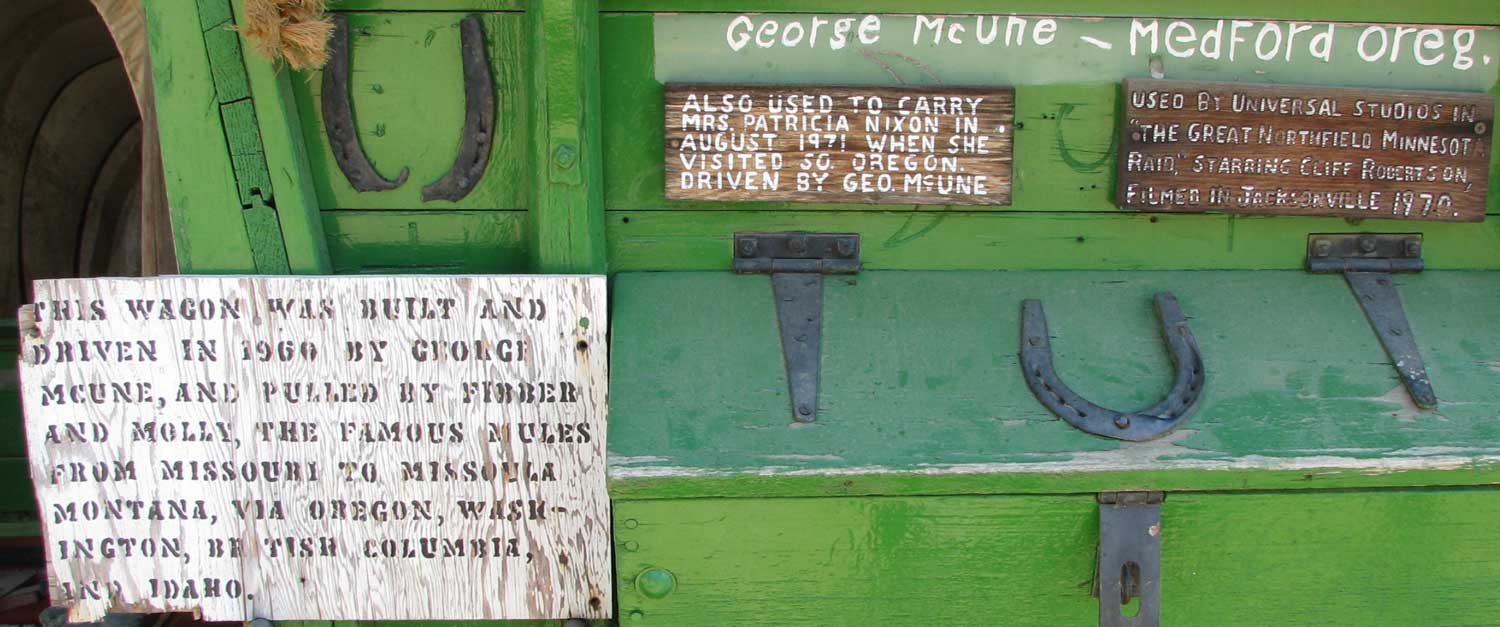 George McUne ~ Medford Oreg.
ALSO USED TO CARRY
MRS. PATRICIA NIXON IN
AUGUST 1971 WHEN SHE
VISITED SO. OREGON.
DRIVEN BY GEO. McUNE
USED BY UNIVERSAL STUDIOS IN
"THE GREAT NORTHFIELD MINNESOTA
RAID," STARRING CLIFF ROBERTSON,
FILMED IN JACKSONVILLE 1970.
THIS WAGON WAS BUILT AND
DRIVEN IN 1960 BY GEORGE
MCUNE, AND PULLED BY FIBBER
AND MOLLY, THE FAMOUS MULES
FROM MISSOURI TO MISSOULA
MONTANA, VIA OREGON, WASH-
INGTON, BRITISH COLUMBIA,
AND IDAHO.